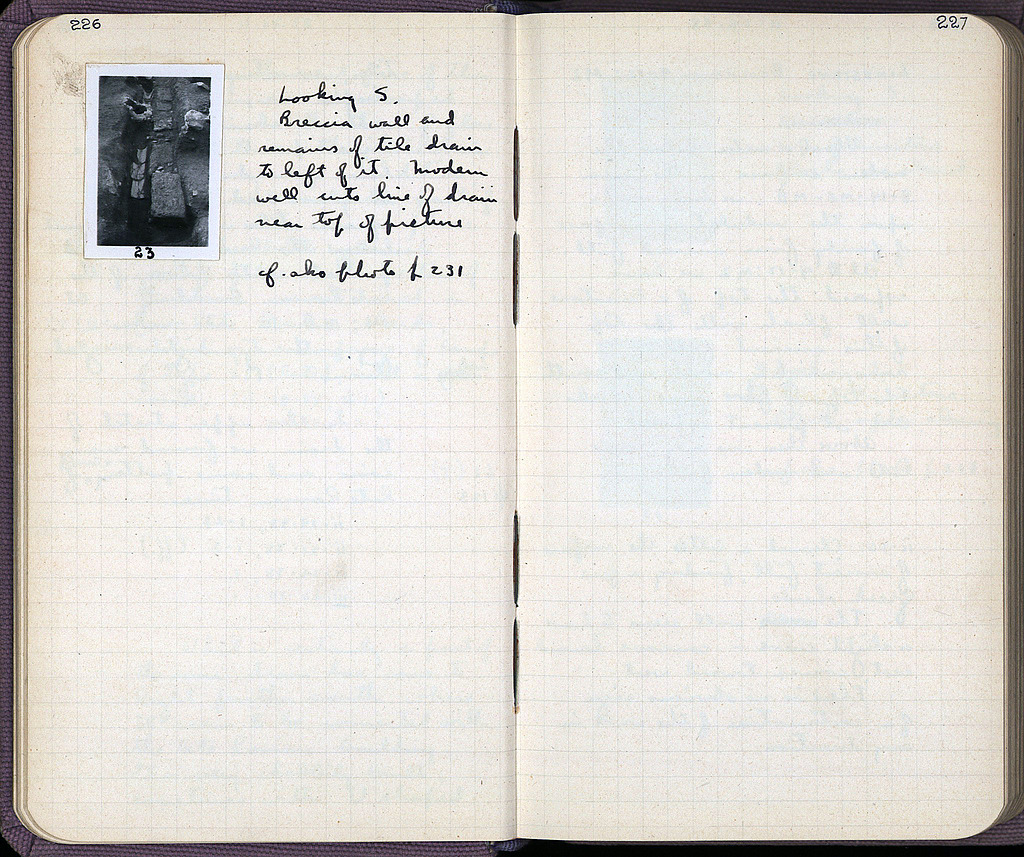 226
Looking S.
Breccia wall and
remains of tile drain
to left of it. Modern
well cuts line of drain
near top of picture
cf. also photo p 231
23
227